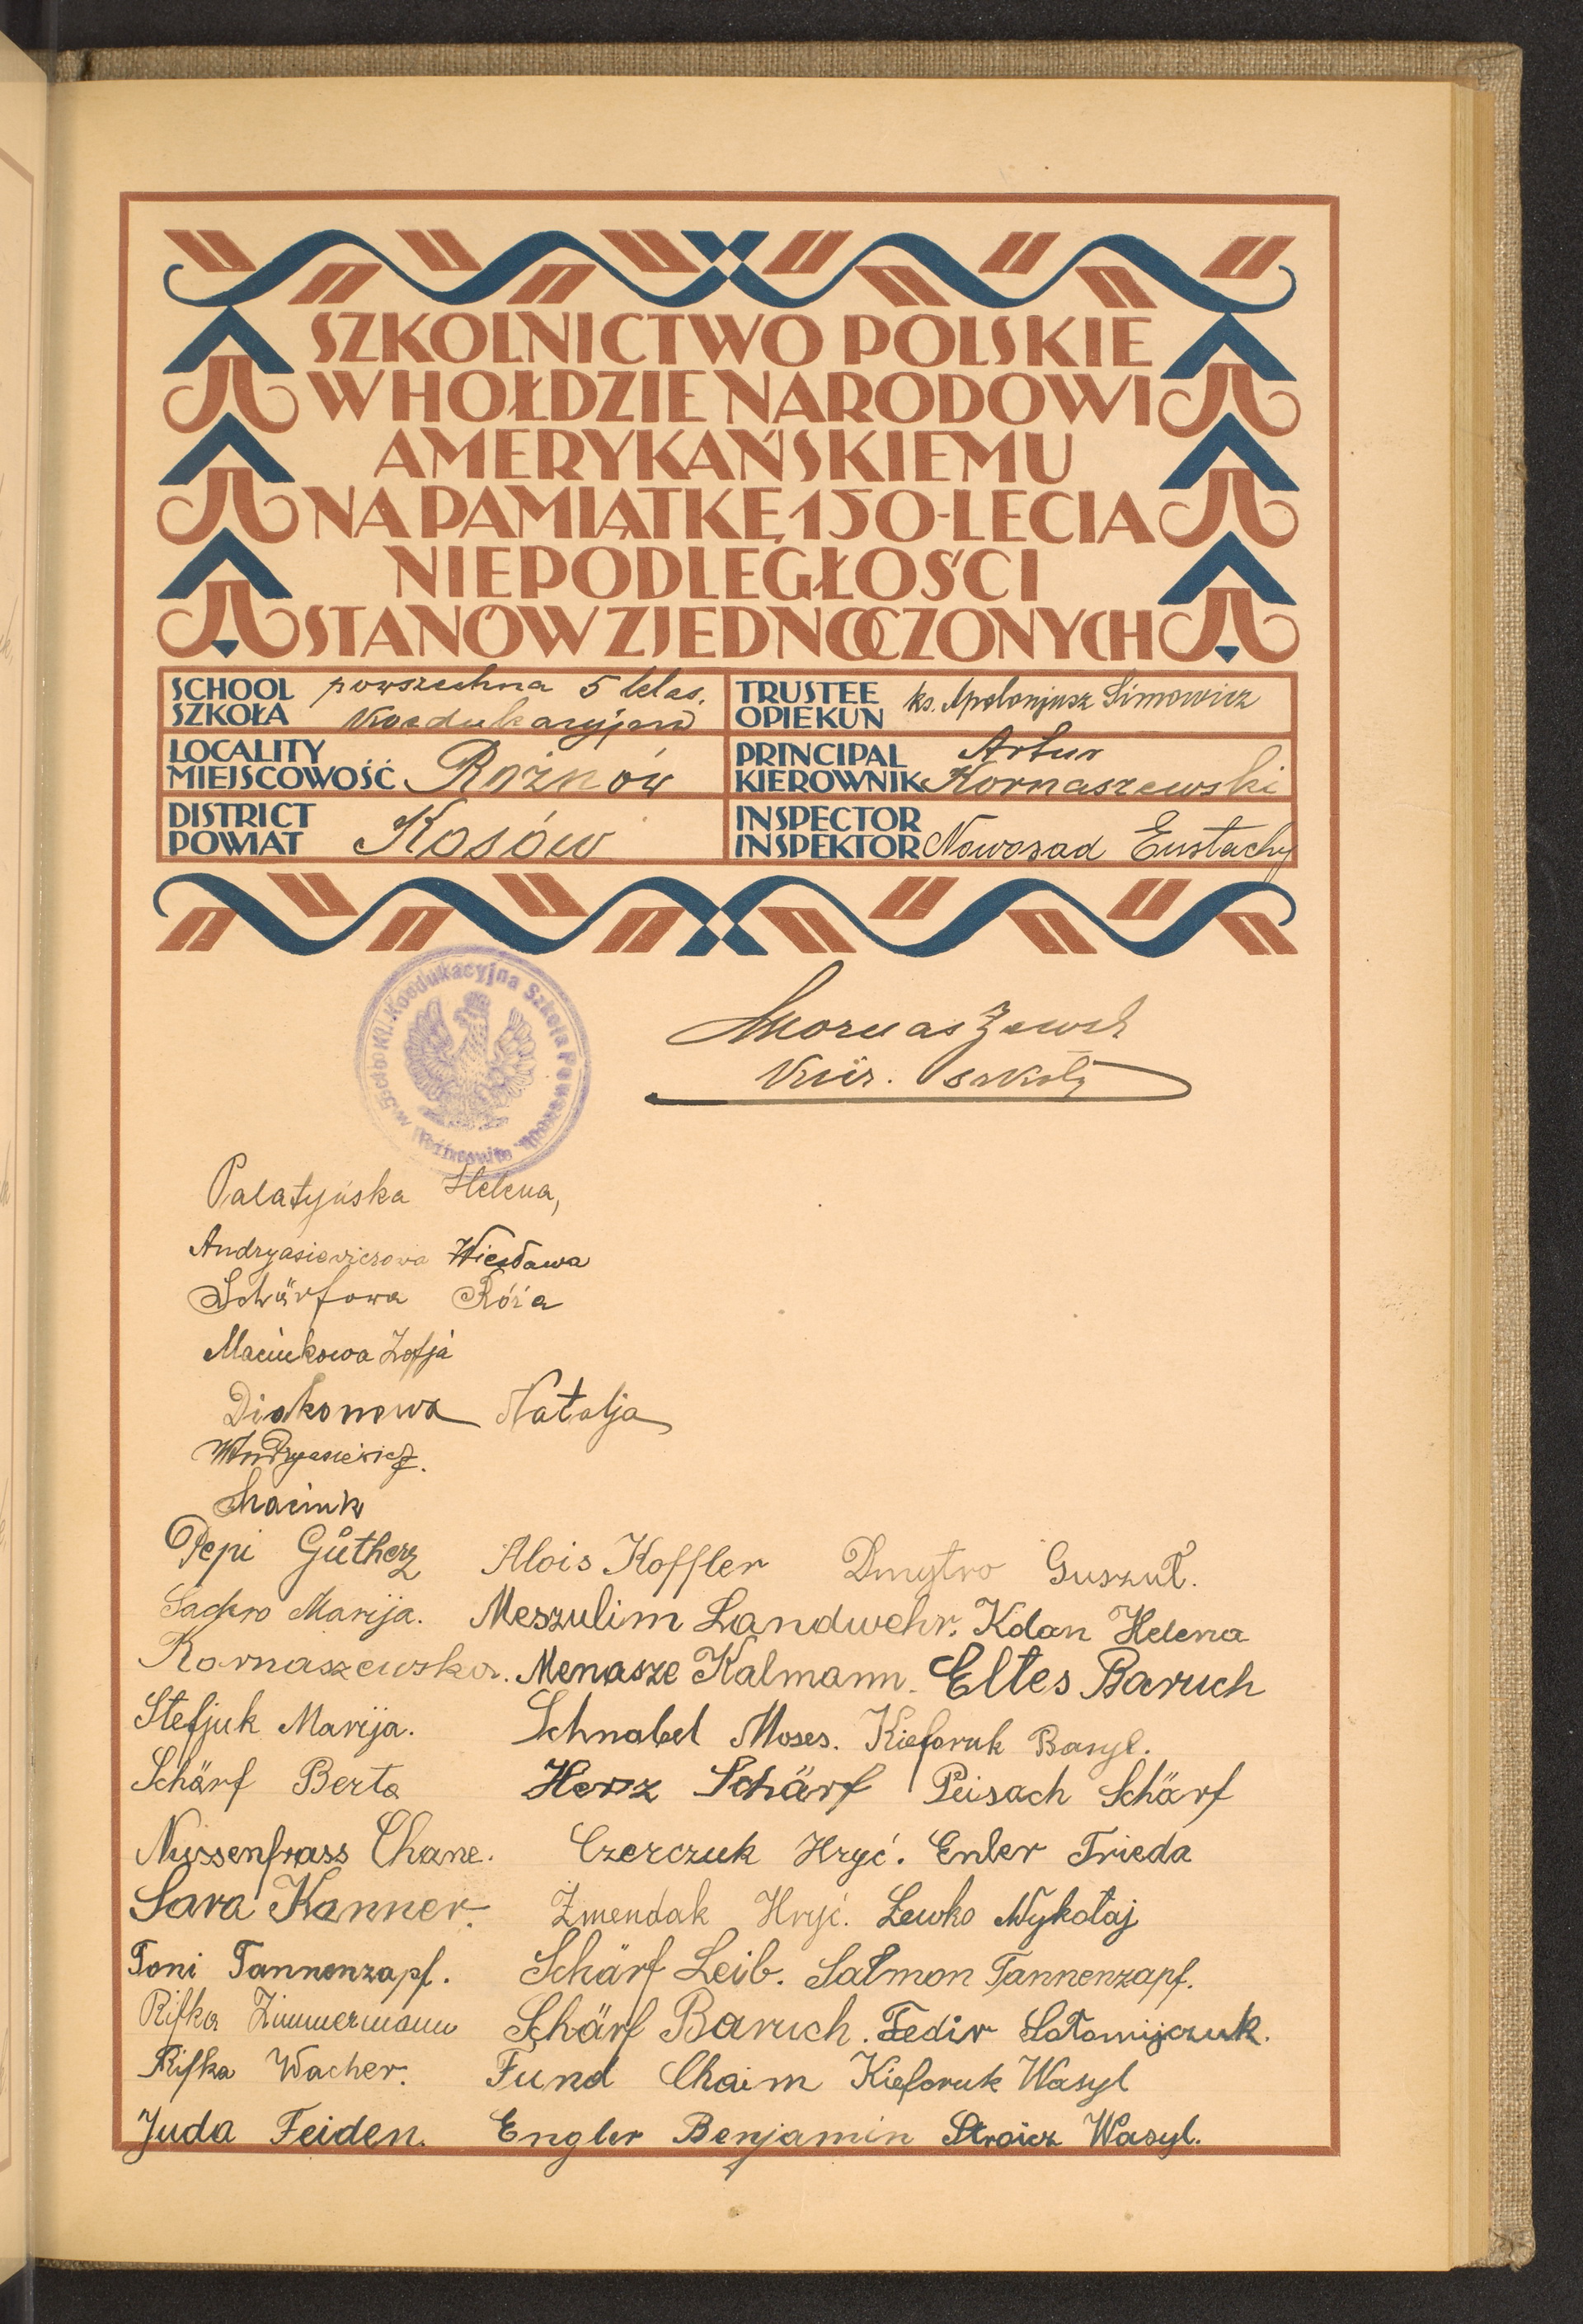 SZKOLNICTWO POLSKIE
W HOŁDZIE NARODOWI
AMERYKAŃSKIEMU
NA PAMIĄTKĘ 150-LECIA
NIEPODLEGŁOŚCI
STANÓW ZJEDNOCZONYCH
SCHOOL SZKOŁA powszechna 5 klas. Koedukacyjna
TRUSTEE OPIEKUN ks. Apolonjusz Simowicz
LOCALITY MIEJSCOWOŚĆ Rożnów
PRINCIPAL KIEROWNIK Artur Kornaszewski
DISTRICT POWIAT Kosów
INSPECTOR INSPEKTOR Nowosad Eustachy
Koedukacyjna Szkoła Powszechna w Rożnowie
Kier. szkoły
Palatyńska Helena,
Andryasiewiczowa Wiesława
Schärfowa Róża
Maciukowa Zofja
Diakonowa Natalja
Andryasiewicz.
Maciuk
Pepi Gutherz Alois Koffler Dmytro Guszuł.
Marija. Meszulim Landwehr. Kdan Helena
Kornaszewska. Menasze Kalmann. Eltes Baruch
Stefjuk Marija. Schnabel Moses. Kieforuk Basyl.
Schärf Berta Hersz Schärf Peisach Schärf
Nussenfrass Chane. Czerczuk Hryć. Enler Frieda
Sara Kanner. Żmendak Hryć. Lewko Mykołaj
Toni Tannenzapf. Schärf Leib. Salmon Tannenzapf.
Rifka Zimmermann Schärf Baruch. Fedir Sołomijczuk.
Rifka Wacher. Fund Chaim Kieforuk Wasyl
Juda Feiden. Engler Benjamin Stroicz Wasyl.